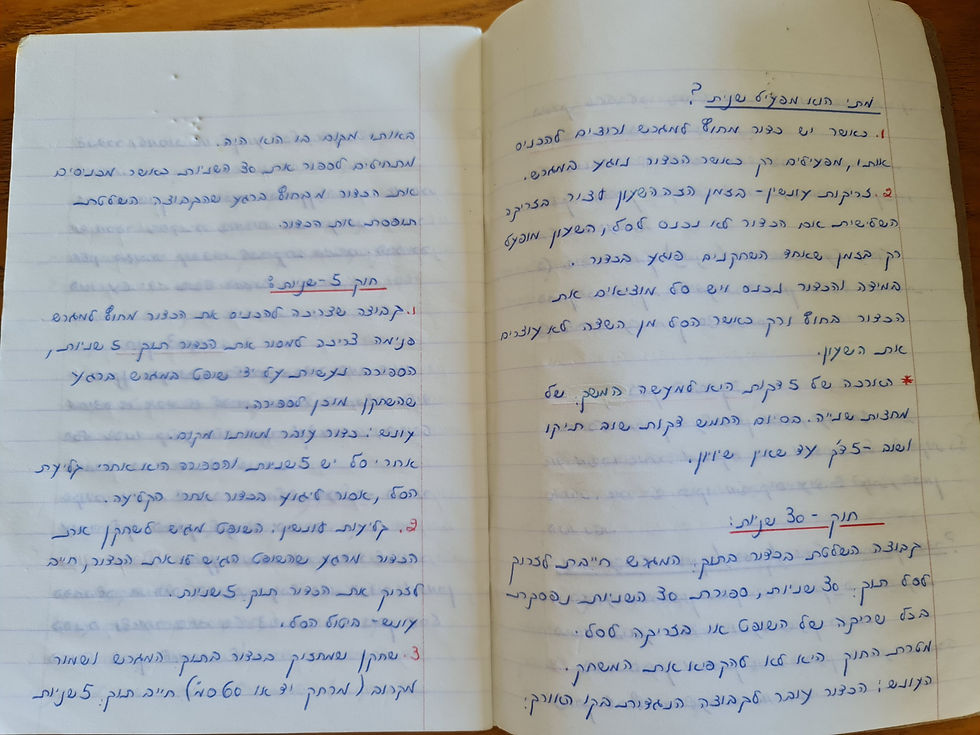 מתי הוא מפעיל שנית?
1. כאשר יש כדור מחוץ למגרש ורוצים להכניס
אותו, מפעילים רק כאשר הכדור נוגע במגרש.
2. זריקות עונשין- בזמן הזה השעון עצור בזריקה
השלישית אם הכדור לא נכנס לסל, השעון מופעל
רק בזמן שאחד השחקנים פוגע בכדור.
במידה והכדור נכנס ויש סל מוציאים את
הכדור בחוץ ורק כאשר הסל מן השדה לא עוצרים
את השעון.
* הארכה של 5 דקות היא למעשה המשך של
מחצית שנייה. בסיום החמש דקות שוב תיקו
ושוב -5 דק' עד שאין שיויון.
חוק - 30 שניות:
קבוצה השלטת בכדור בתוך המגרש חייבת לזרוק
לסל תוך 30 שניות, ספירת 30 השניות נפסקת
בכל שריקה של השופט או בזריקה לסל.
מטרת החוק היא לא להקפיא את המשחק.
העונש: הכדור עובר לקבוצה הנגדית בקו האורך:
באותו מקום בו הוא היה.
מתחילים לספור את 30 השניות כאשר מכניסים
את הכדור מבחוץ ברגע שהקבוצה השלטת
תופסת את הכדור.
חוק 5- שניות:
1. קבוצה שצריכה להכניס את הכדור מחוץ למגרש
פנימה צריכה למסור את הכדור תוך 5 שניות,
הספירה נעשית על ידי שופט במגרש ברגע
שהשחקן מוכן לספירה.
עונש: כדור עובר מאותו מקום.
אחרי סל יש 5 שניות והספירה היא אחרי קליעת
הסל, אסור ליגוע בכדור אחרי הקליעה.
2. קליעות עונשין: השופט מגיש לשחקן את
הכדור מרגע שהשופט הגיש לו את הכדור, חייב
לזרוק את הכדור תוך 5 שניות.
עונש- ביטול הסל.
3. שחקן שמחזיק בכדור בתוך המגרש ושמור
מקרוב (מרחק יד או 50 ס"מ) חייב תוך 5 שניות